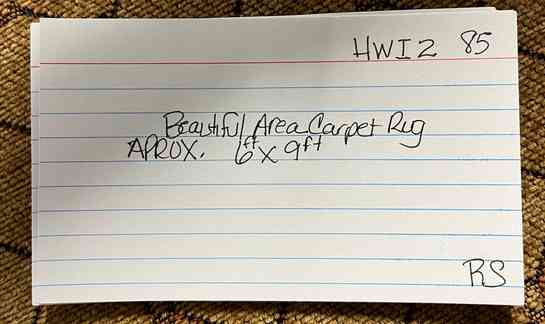 HWI2 85
Beautiful Area Carpet Rug
APROX. 6ft X 9ft
RS